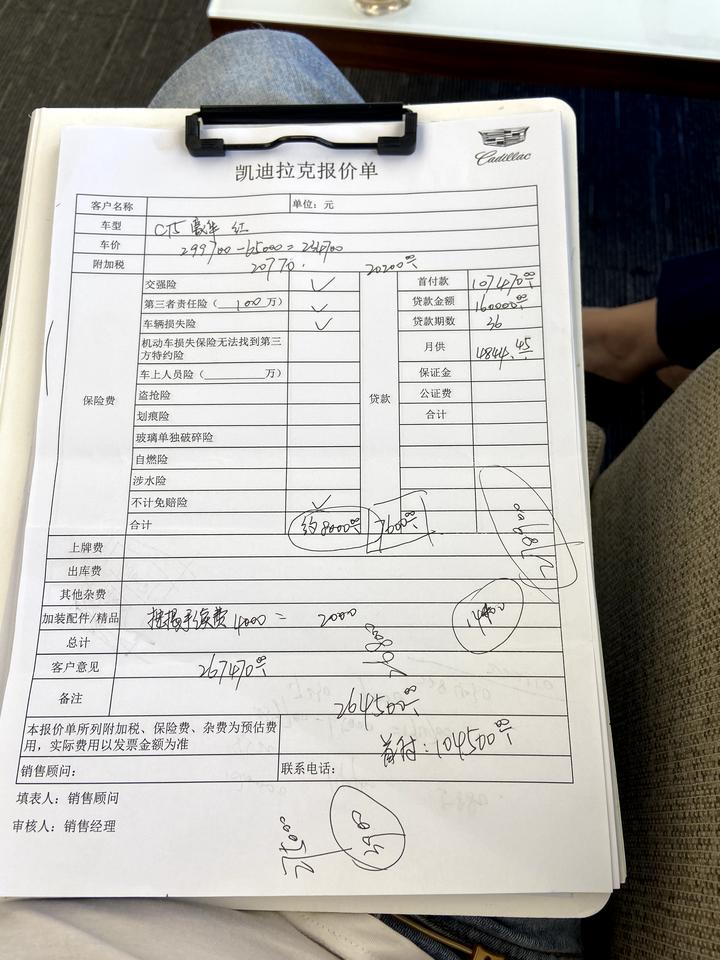 Cadillac
凯迪拉克报价单
客户名称 单位：元
车型 CT5 豪华 红
车价 299700-65000=234700
附加税 20770. 20200元
保险费 交强险 ✓ 贷款 首付款 107470元
第三者责任险（100万） ✓ 贷款金额 160000元
车辆损失险 ✓ 贷款期数 36
机动车损失保险无法找到第三
方特约险 月供 4844.45元
车上人员险（ 万） 保证金
盗抢险 公证费
划痕险 合计
玻璃单独破碎险
自燃险
涉水险
不计免赔险 ✓
合计 约8000元 7600元
上牌费
出库费
其他杂费
加装配件/精品 按揭手续费 4000 = 2000
总计
客户意见 267470元
备注 264500元
本报价单所列附加税、保险费、杂费为预估费
用，实际费用以发票金额为准 首付：104500元
销售顾问： 联系电话：
填表人：销售顾问
审核人：销售经理